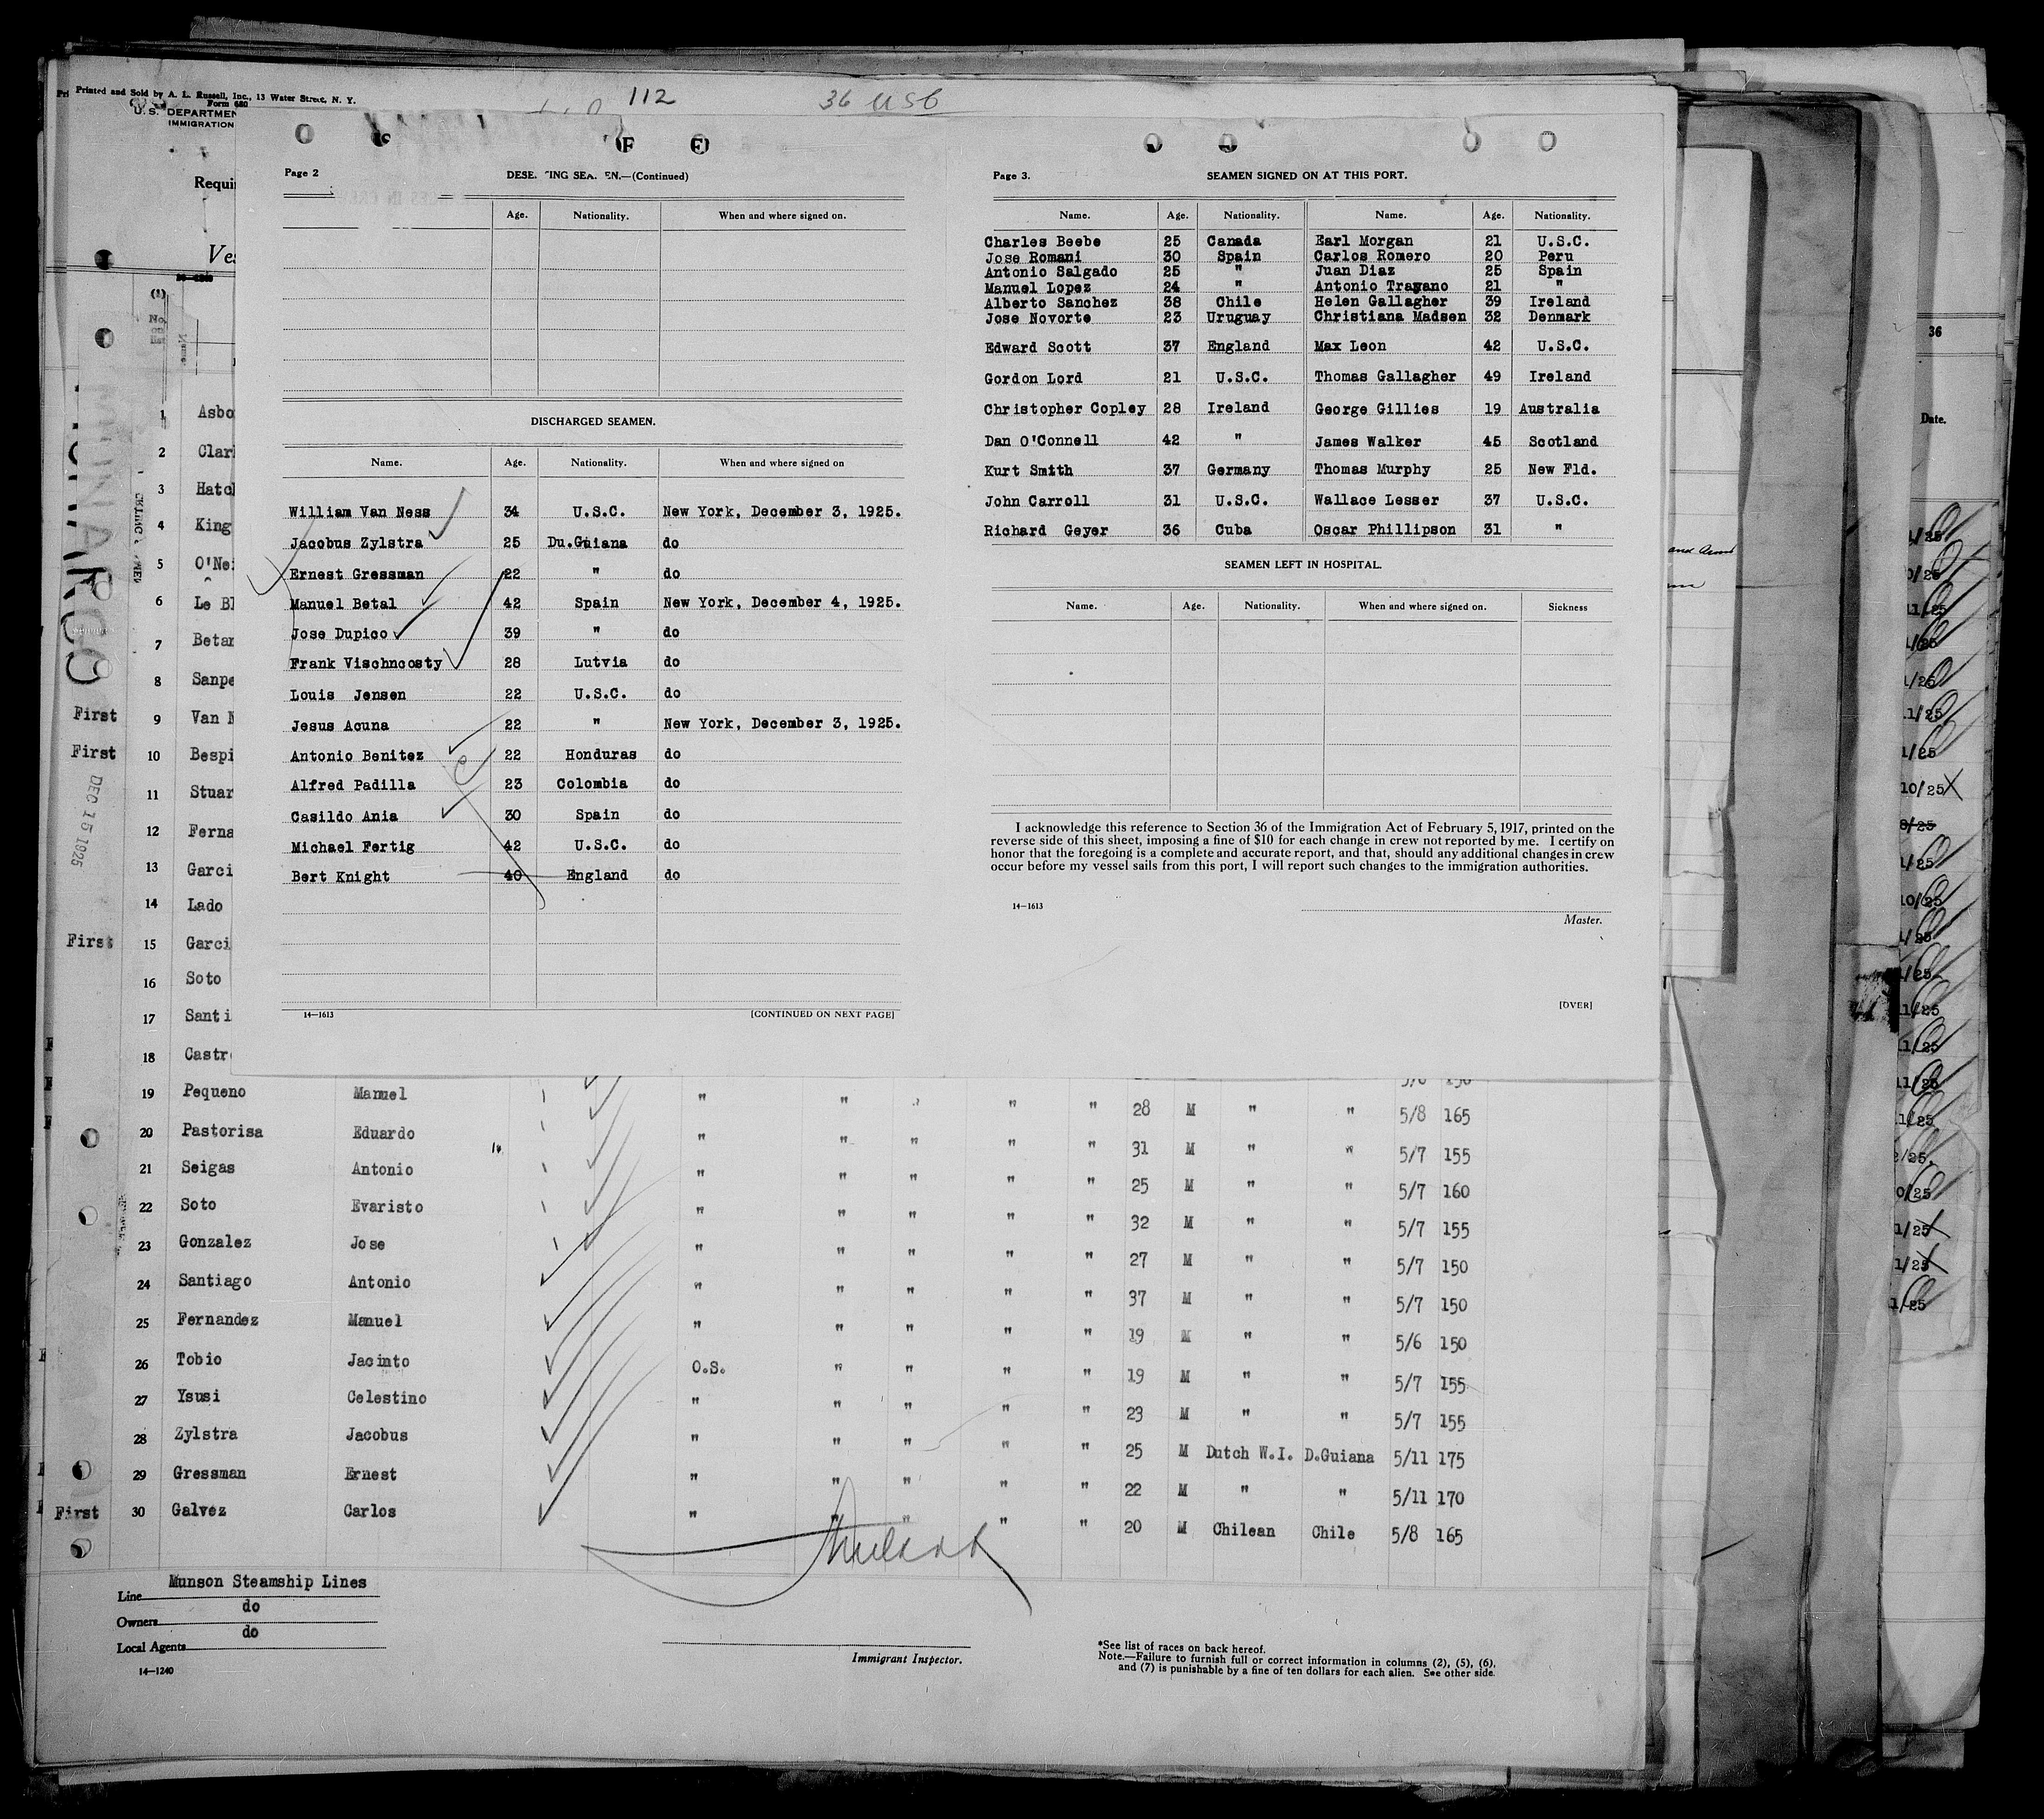 Printed and Sold by A. L. Russell, Inc., 13 Water Street, N. Y.
Form 680
U. S. DEPARTMEN
IMMIGRATION
112
36 USC
Requi
Ves
MUNARGO
DEC 15 1925
Page 2
DESE TING SEA EN.—(Continued)
Age. Nationality. When and where signed on.
DISCHARGED SEAMEN.
Name. Age. Nationality. When and where signed on
William Van Ness 34 U.S.C. New York, December 3, 1925.
Jacobus Zylstra 25 Du.Guiana do
Ernest Gressman 22 " do
Manuel Betal 42 Spain New York, December 4, 1925.
Jose Dupico 39 " do
Frank Vischncosty 28 Lutvia do
Louis Jensen 22 U.S.C. do
Jesus Acuna 22 " New York, December 3, 1925.
Antonio Benitez 22 Honduras do
Alfred Padilla 23 Colombia do
Casildo Ania 30 Spain do
Michael Fertig 42 U.S.C. do
Bert Knight 40 England do
14—1613 [CONTINUED ON NEXT PAGE]
Page 3.
SEAMEN SIGNED ON AT THIS PORT.
Name. Age. Nationality. Name. Age. Nationality.
Charles Beebe 25 Canada Earl Morgan 21 U.S.C.
Jose Romani 30 Spain Carlos Romero 20 Peru
Antonio Salgado 25 " Juan Diaz 25 Spain
Manuel Lopez 24 " Antonio Trayano 21 "
Alberto Sanchez 38 Chile Helen Gallagher 39 Ireland
Jose Novorte 23 Uruguay Christiana Madsen 32 Denmark
Edward Scott 37 England Max Leon 42 U.S.C.
Gordon Lord 21 U.S.C. Thomas Gallagher 49 Ireland
Christopher Copley 28 Ireland George Gillies 19 Australia
Dan O'Connell 42 " James Walker 45 Scotland
Kurt Smith 37 Germany Thomas Murphy 25 New Fld.
John Carroll 31 U.S.C. Wallace Lesser 37 U.S.C.
Richard Geyer 36 Cuba Oscar Phillipson 31 "
SEAMEN LEFT IN HOSPITAL.
Name. Age. Nationality. When and where signed on. Sickness
I acknowledge this reference to Section 36 of the Immigration Act of February 5, 1917, printed on the
reverse side of this sheet, imposing a fine of $10 for each change in crew not reported by me. I certify on
honor that the foregoing is a complete and accurate report, and that, should any additional changes in crew
occur before my vessel sails from this port, I will report such changes to the immigration authorities.
14—1613
Master.
[OVER]
1 Asbo
2 Clar
3 Hatch
4 King
5 O'Nei
6 Le Bl
7 Betan
8 Sanpe
First 9 Van N
First 10 Bespi
11 Stuar
12 Ferna
13 Garci
14 Lado
First 15 Garci
16 Soto
17 Santi
18 Castr
19 Pequeno Manuel " " " " " 28 M " " 5/8 165
20 Pastorisa Eduardo " " " " " 31 M " " 5/7 155
21 Seigas Antonio " " " " " 25 M " " 5/7 160
22 Soto Evaristo " " " " " 32 M " " 5/7 155
23 Gonzalez Jose " " " " " 27 M " " 5/7 150
24 Santiago Antonio " " " " " 37 M " " 5/7 150
25 Fernandez Manuel " " " " " 19 M " " 5/6 150
26 Tobio Jacinto O.S. " " " " 19 M " " 5/7 155
27 Ysusi Celestino " " " " " 23 M " " 5/7 155
28 Zylstra Jacobus " " " " " 25 M Dutch W.I. D.Guiana 5/11 175
29 Gressman Ernest " " " " " 22 M " " 5/11 170
First 30 Galvez Carlos " " " " " 20 M Chilean Chile 5/8 165
Line Munson Steamship Lines
Owners do
Local Agents do
14—1240
Immigrant Inspector.
*See list of races on back hereof.
Note.—Failure to furnish full or correct information in columns (2), (5), (6),
and (7) is punishable by a fine of ten dollars for each alien. See other side.
36
Date.